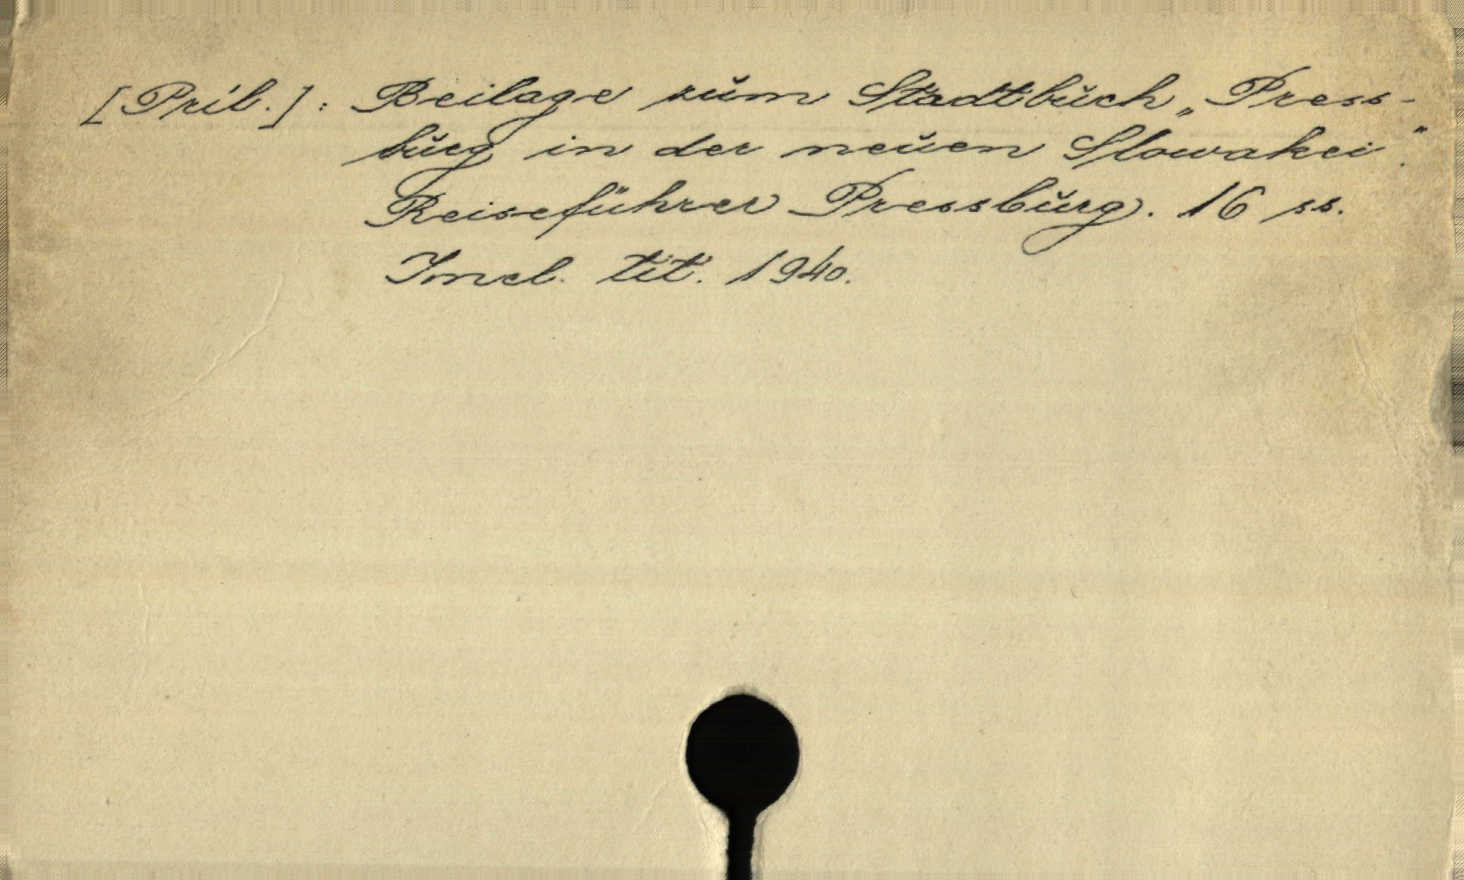 [Príl.]: Beilage zum Stadtbuch „Press-
burg in der neuen Slowakei“.
Reiseführer Pressburg. 16 ss.
Imcl. tit. 1940.